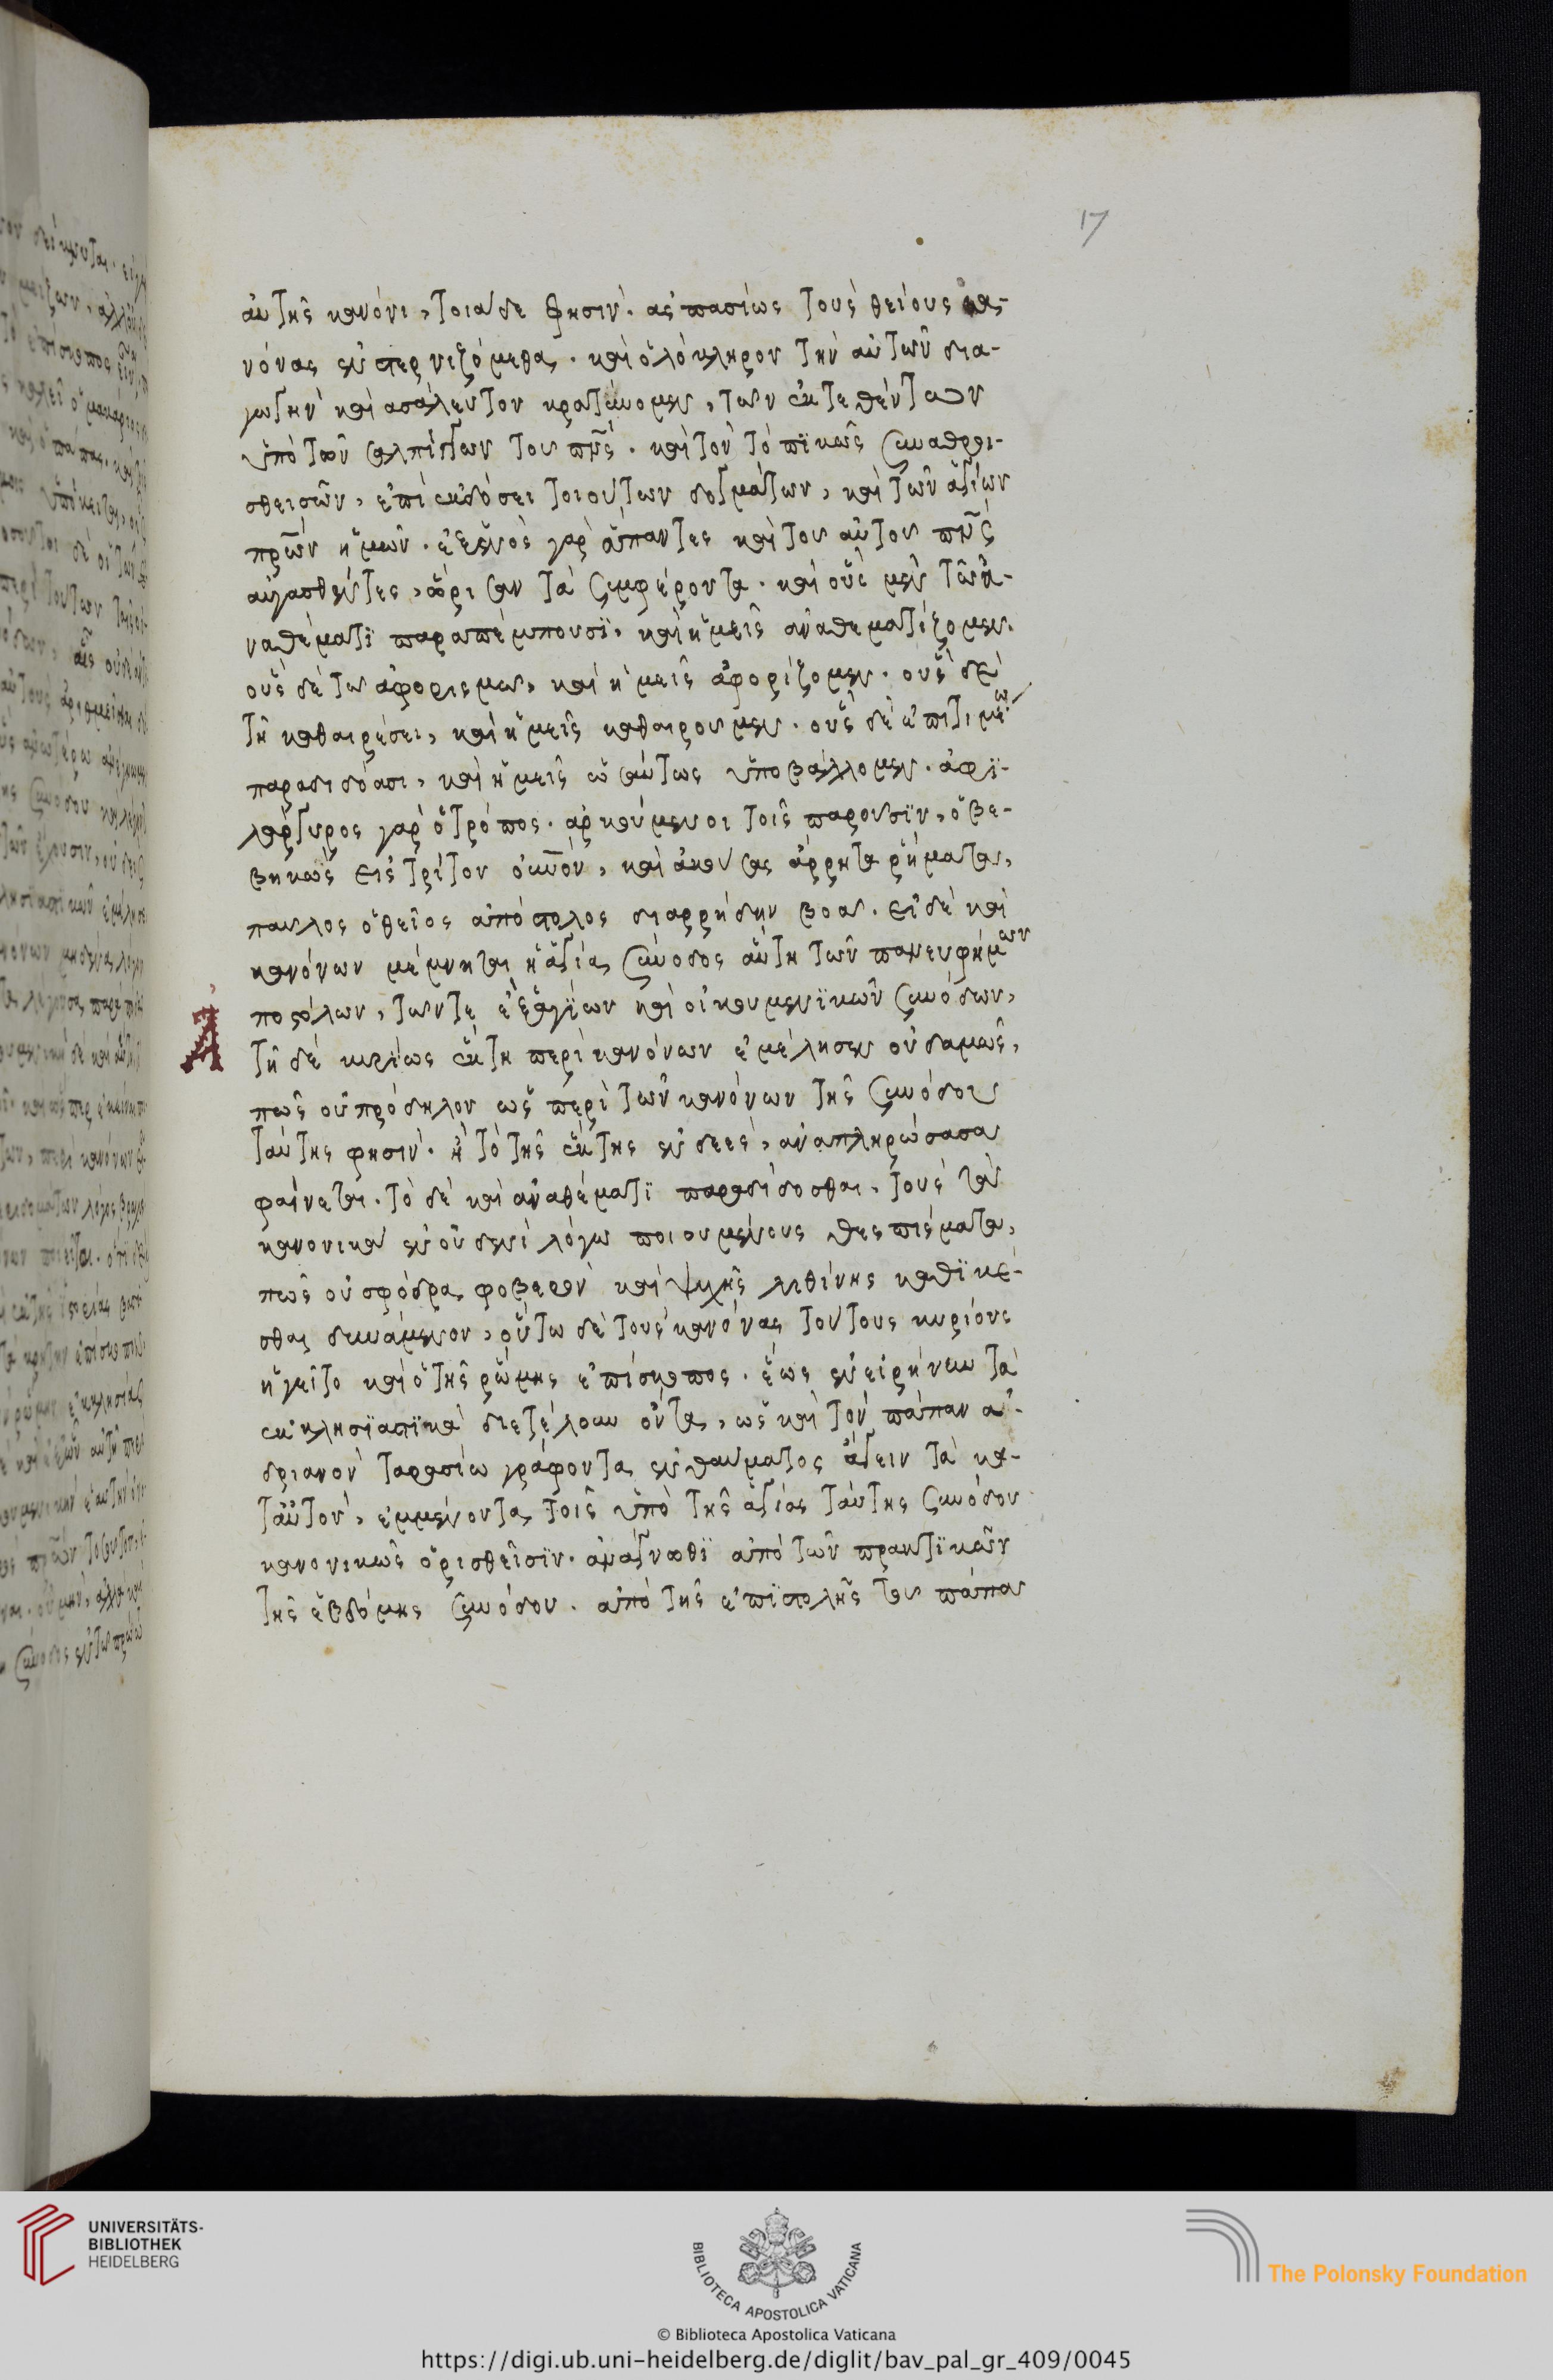 17
αὐτῆς κανόνι, τοιάδε φησίν· ἀσπασίως τοὺς θείους κα-
νόνας ἐνστερνιζόμεθα· καὶ ὁλόκληρον τὴν αὐτῶν δια-
γωγὴν καὶ ἀσάλευτον κρατύνομεν, τῶν ἐκτεθέντων
ὑπὸ τῶν σαλπίγγων τοῦ πν̅ς· καὶ τῶν τοπικῶς συναθροι-
σθεισῶν, ἐπὶ ἐκδόσει τοιούτων δογμάτων, καὶ τῶν ἁγίων
πρ̅ων ἡμῶν· ἐξ ἑνὸς γὰρ ἅπαντες καὶ τοῦ αὐτοῦ πν̅ς
αὐγασθέντες, ὥρισαν τὰ συμφέροντα· καὶ οὓς μὲν τῷ ἀ-
ναθέματι παραπέμπουσι, καὶ ἡμεῖς ἀναθεματίζομεν·
οὓς δὲ τῷ ἀφορισμῷ, καὶ ἡμεῖς ἀφορίζομεν· οὓς δὲ
τῇ καθαιρέσει, καὶ ἡμεῖς καθαιροῦμεν· οὓς δὲ ἐπιτιμίω
παραδιδόασι, καὶ ἡμεῖς ὡσαύτως ὑποβάλλομεν· ἀφι-
λάργυρος γὰρ ὁ τρόπος· ἀρκούμενοι τοῖς παροῦσιν, ὁ βε-
βηκὼς εἰς τρίτον οὐ̅νόν, καὶ ἀκούσας ἄρρητα ῥήματα,
παῦλος ὁ θεῖος ἀπόστολος διαρρήδην βοᾷ· εἰ δὲ καὶ
κανόνων μέμνηται ἡ ἁγία σύνοδος αὕτη τῶν πανευφήμων
ποστόλων, τῶν τε ἓξ ἁγίων καὶ οἰκουμενικῶν συνόδων,
τῇ δὲ κυρίως ἕκτη περὶ κανόνων ἐμέλησεν οὐδαμῶς,
πῶς οὐ πρόδηλον ὡς περὶ τῶν κανόνων τῆς συνόδου
ταύτης φησίν· ἢ τὸ τῆς ἕκτης ἐνδεὲς, ἀναπληρώσασα
φαίνεται· τὸ δὲ καὶ ἀναθέματι παραδίδοσθαι, τοὺς τὰ
κανονικὰ ἐν οὐδενὶ λόγω ποιουμένους θεσπίσματα,
πῶς οὐ σφόδρα φοβερὸν καὶ ψυχῆς λιθίνης καθικέ-
σθαι δυνάμενον, οὕτω δὲ τοὺς κανόνας τούτους κυρίους
ἡγεῖτο καὶ ὁ τῆς ῥώμης ἐπίσκοπος· ἕως ἐν εἰρήνῃ τὰ
ἐκκλησιαστικὰ διετέλουν ὄντα, ὡς καὶ τὸν πάπαν ἀ-
δριανὸν ταρασίω γράφοντα ἐν θαύματος ἄγειν τὰ κα-
τ' αὐτὸν, ἐμμένοντα τοῖς ὑπὸ τῆς ἁγίας ταύτης συνόδου
κανονικῶς ὁρισθεῖσιν· ἀνάγνωθι ἀπὸ τῶν πρακτικῶν
τῆς ἑβδόμης συνόδου· ἀπὸ τῆς ἐπιστολῆς τοῦ πάπα
UNIVERSITÄTS-
BIBLIOTHEK
HEIDELBERG
BIBLIOTECA APOSTOLICA VATICANA
The Polonsky Foundation
© Biblioteca Apostolica Vaticana
https://digi.ub.uni-heidelberg.de/diglit/bav_pal_gr_409/0045